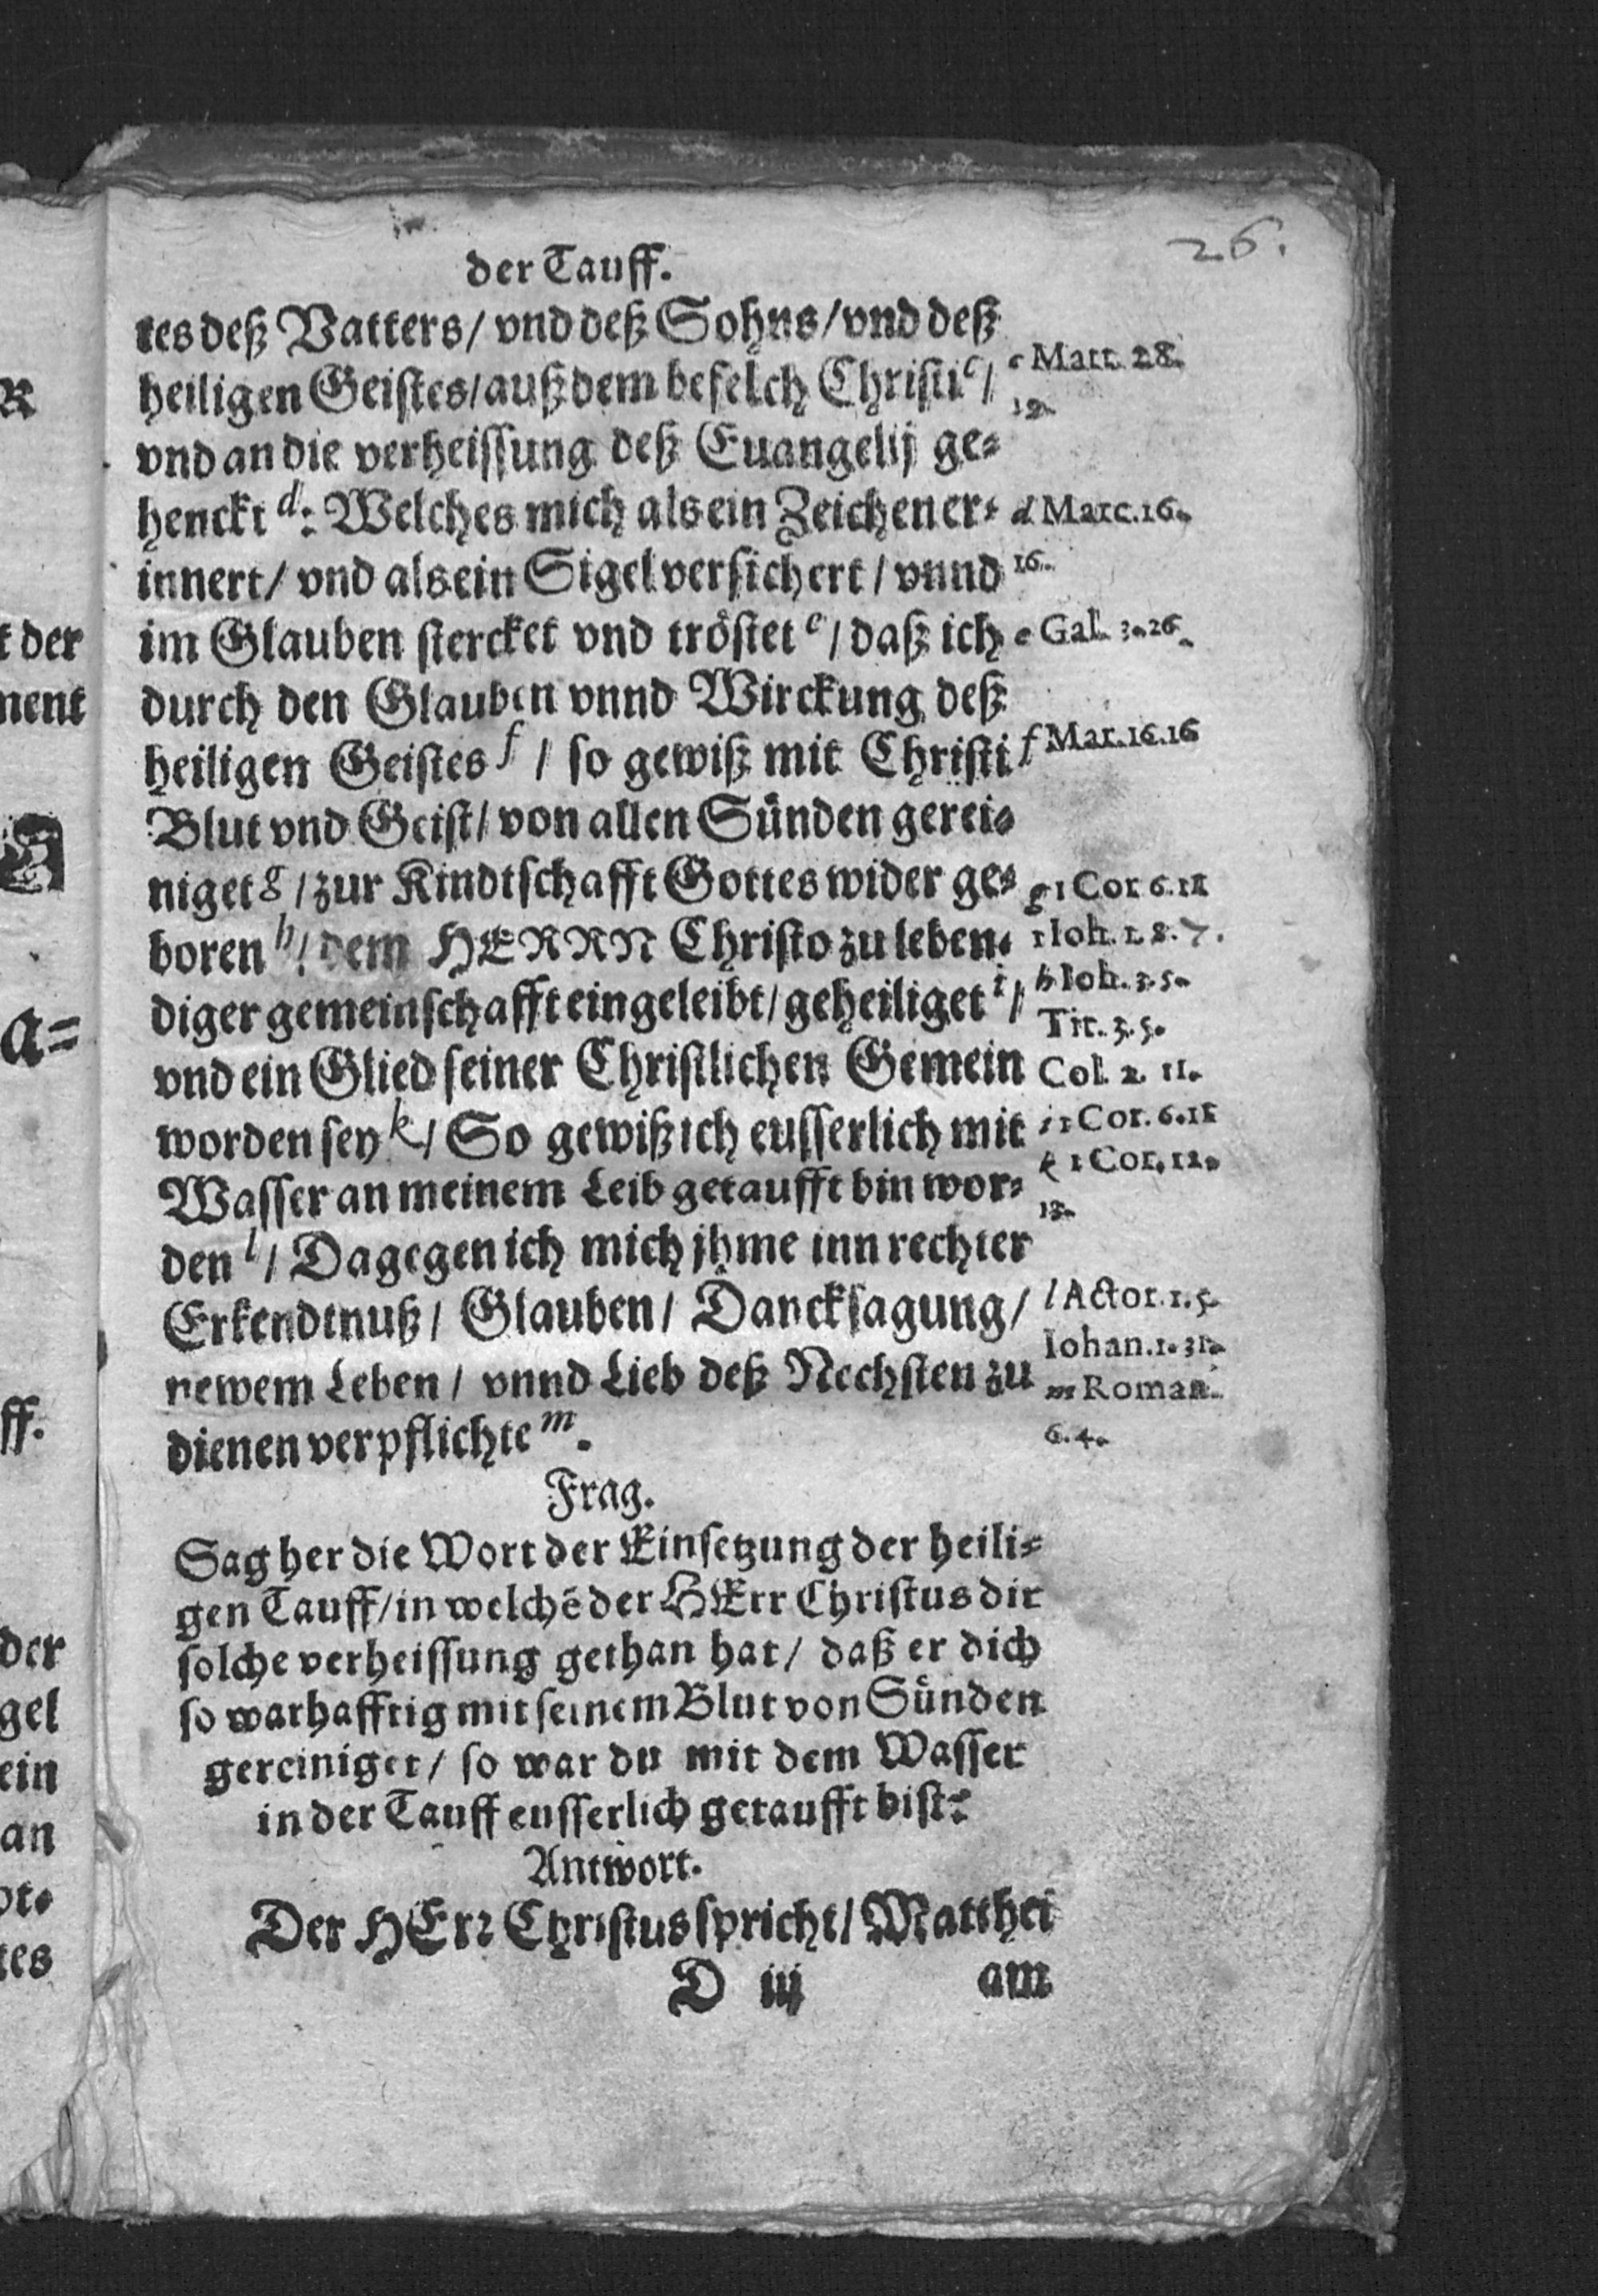 26.
der Tauff.
tes deß Vatters/ vnd deß Sohns/ vnd deß
heiligen Geistes/ auß dem befelch Christi c/
vnd an die verheissung deß Euangelij ge=
henckt d: Welches mich als ein Zeichen er=
innert/ vnd als ein Sigel versichert/ vnnd
im Glauben stercket vnd tröstet e/ daß ich
durch den Glauben vnnd Wirckung deß
heiligen Geistes f/ so gewiß mit Christi
Blut vnd Geist/ von allen Sünden gerei=
niget g/ zur Kindtschafft Gottes wider ge=
boren h/ dem HERRN Christo zu leben=
diger gemeinschafft eingeleibt/ geheiliget i/
vnd ein Glied seiner Christlichen Gemein
worden sey k/ So gewiß ich eusserlich mit
Wasser an meinem Leib getaufft bin wor=
den l/ Dagegen ich mich jhme inn rechter
Erkendtnuß/ Glauben/ Dancksagung/
newem Leben/ vnnd Lieb deß Nechsten zu
dienen verpflichte m.
c Matt. 28.
19.
d Marc. 16.
16.
e Gal. 3. 26.
f Mar. 16. 16
g 1 Cor. 6. 11
1 Ioh. 1. 8. 7.
h Ioh. 3. 5.
Tit. 3. 5.
Col. 2. 11.
i 1 Cor. 6. 11
k 1 Cor. 12.
13.
l Actor. 1. 5.
Iohan. 1. 31.
m Roman.
6. 4.
Frag.
Sag her die Wort der Einsetzung der heili=
gen Tauff/ in welchē der HErr Christus dir
solche verheissung gethan hat/ daß er dich
so warhafftig mit seinem Blut von Sünden
gereiniget/ so war du mit dem Wasser
in der Tauff eusserlich getaufft bist?
Antwort.
Der HErr Christus spricht/ Matthei
D iij am